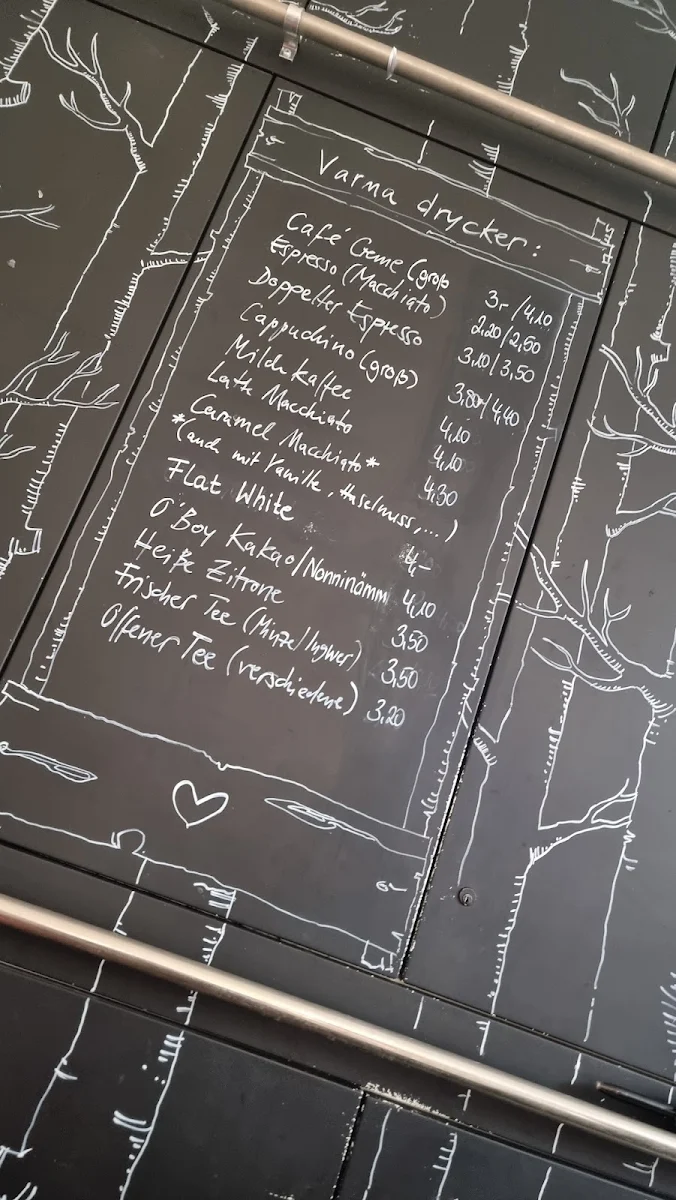 Varma drycker:
Café Creme (groß 3,-/4,10
Espresso (Macchiato) 2,20/2,50
Doppelter Espresso 3,10/3,50
Cappuchino (groß) 3,80/4,40
Milch Kaffee 4,10
Latte Macchiato 4,10
Caramel Macchiato* 4,30
*(auch mit Vanille, Haselnuss,...)
Flat White 4,-
O'Boy Kakao/Nonninämm 4,10
Heiße Zitrone 3,50
Frischer Tee (Minze/Ingwer) 3,50
Offener Tee (verschiedene) 3,20